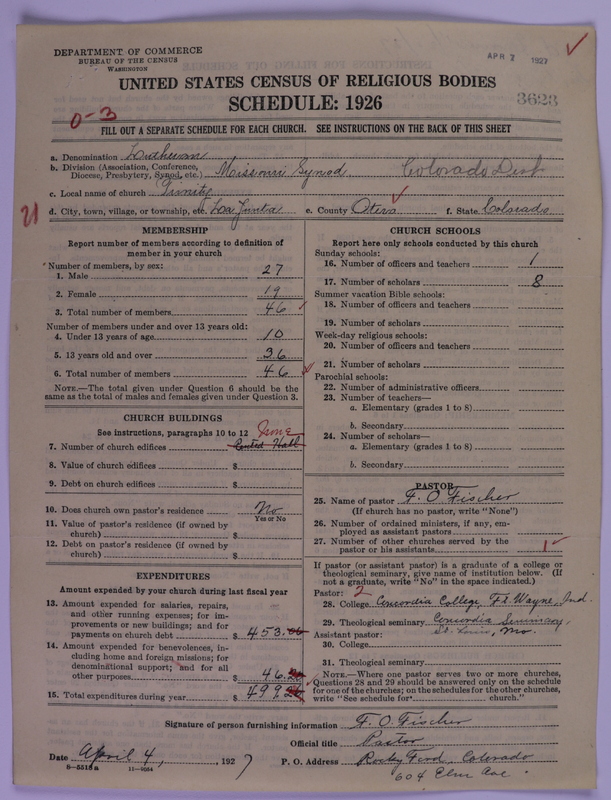 DEPARTMENT OF COMMERCE
BUREAU OF THE CENSUS
WASHINGTON
APR 7 1927
UNITED STATES CENSUS OF RELIGIOUS BODIES
SCHEDULE: 1926
3623
0-3
FILL OUT A SEPARATE SCHEDULE FOR EACH CHURCH. SEE INSTRUCTIONS ON THE BACK OF THIS SHEET
a. Denomination Lutheran
b. Division (Association, Conference, Diocese, Presbytery, Synod, etc.) Missouri Synod Colorado Dist
c. Local name of church Trinity
21
d. City, town, village, or township, etc. La Junta e. County Otero f. State Colorado
MEMBERSHIP
Report number of members according to definition of member in your church
Number of members, by sex:
1. Male 27
2. Female 19
3. Total number of members 46
Number of members under and over 13 years old:
4. Under 13 years of age 10
5. 13 years old and over 36
6. Total number of members 46
NOTE.—The total given under Question 6 should be the
same as the total of males and females given under Question 3.
CHURCH BUILDINGS
See instructions, paragraphs 10 to 12
None
7. Number of church edifices Rented Hall
8. Value of church edifices $
9. Debt on church edifices $
10. Does church own pastor's residence No
Yes or No
11. Value of pastor's residence (if owned by
church) $
12. Debt on pastor's residence (if owned by
church) $
EXPENDITURES
Amount expended by your church during last fiscal year
13. Amount expended for salaries, repairs,
and other running expenses; for im-
provements or new buildings; and for
payments on church debt $ 453.
14. Amount expended for benevolences, in-
cluding home and foreign missions; for
denominational support; and for all
other purposes $ 46.
15. Total expenditures during year $ 499.
CHURCH SCHOOLS
Report here only schools conducted by this church
Sunday schools:
16. Number of officers and teachers 1
17. Number of scholars 8
Summer vacation Bible schools:
18. Number of officers and teachers
19. Number of scholars
Week-day religious schools:
20. Number of officers and teachers
21. Number of scholars
Parochial schools:
22. Number of administrative officers
23. Number of teachers—
a. Elementary (grades 1 to 8)
b. Secondary
24. Number of scholars—
a. Elementary (grades 1 to 8)
b. Secondary
PASTOR
25. Name of pastor F. O Fischer
(If church has no pastor, write "None")
26. Number of ordained ministers, if any, em-
ployed as assistant pastors
27. Number of other churches served by the
pastor or his assistants 1
If pastor (or assistant pastor) is a graduate of a college or
theological seminary, give name of institution below. (If
not a graduate, write "No" in the space indicated.)
Pastor: 2
28. College Concordia College, Ft. Wayne, Ind.
29. Theological seminary Concordia Seminary,
Assistant pastor: St. Louis, Mo.
30. College
31. Theological seminary
NOTE.—Where one pastor serves two or more churches,
Questions 28 and 29 should be answered only on the schedule
for one of the churches; on the schedules for the other churches,
write "See schedule for church."
Signature of person furnishing information F. O. Fischer
Official title Pastor
Date April 4, 1927 P. O. Address Rocky Ford, Colorado
8-5515a 11-9054 604 Elm Ave.